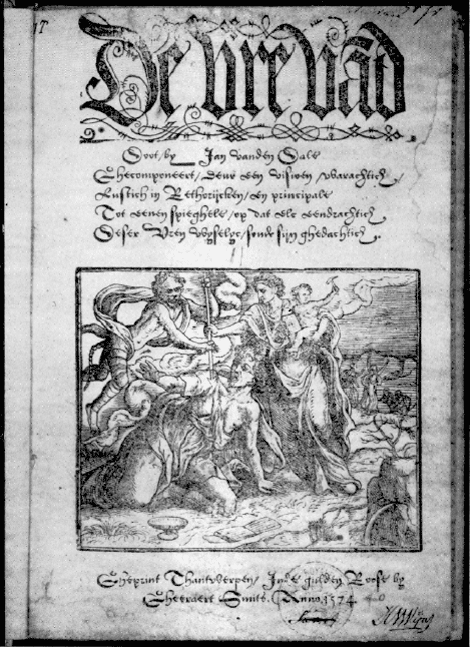 De vre vãd
Doot, by Jan vanden Dale
Ghecomponeert, deur een visioen, warachtich,
Lustich in Rethorijcken, en principale
Tot eenen spieghele, op dat elc eendrachtich
Deser Vren sonde sijn ghedachtich.
Gheprint Thantwerpen, Jnde gulden Roose by
Gheeraert Smits. Anno. 1574